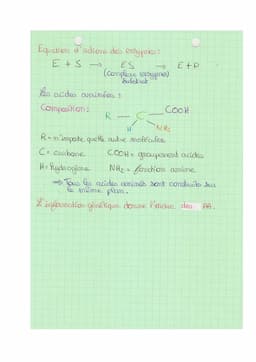 Equation d'actions des enzymes :
E + S → ES → E + P
(Complexe enzyme)
Substrat
Les acides aminés :
Composition :
R — C — COOH
H NH2
R = n'importe quelle autre molécules
C = carbone COOH = groupement acides
H = Hydrogène NH2 = fonction amine
⇒ Tous les acides aminés sont construits sur
le même plan.
L'information génétique donne l'ordre des AA.